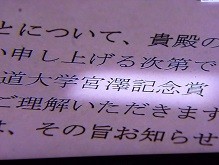 とについて、貴殿の
い申し上げる次第で
道大学宮澤記念賞
ご理解いただきます
は、その旨お知らせ